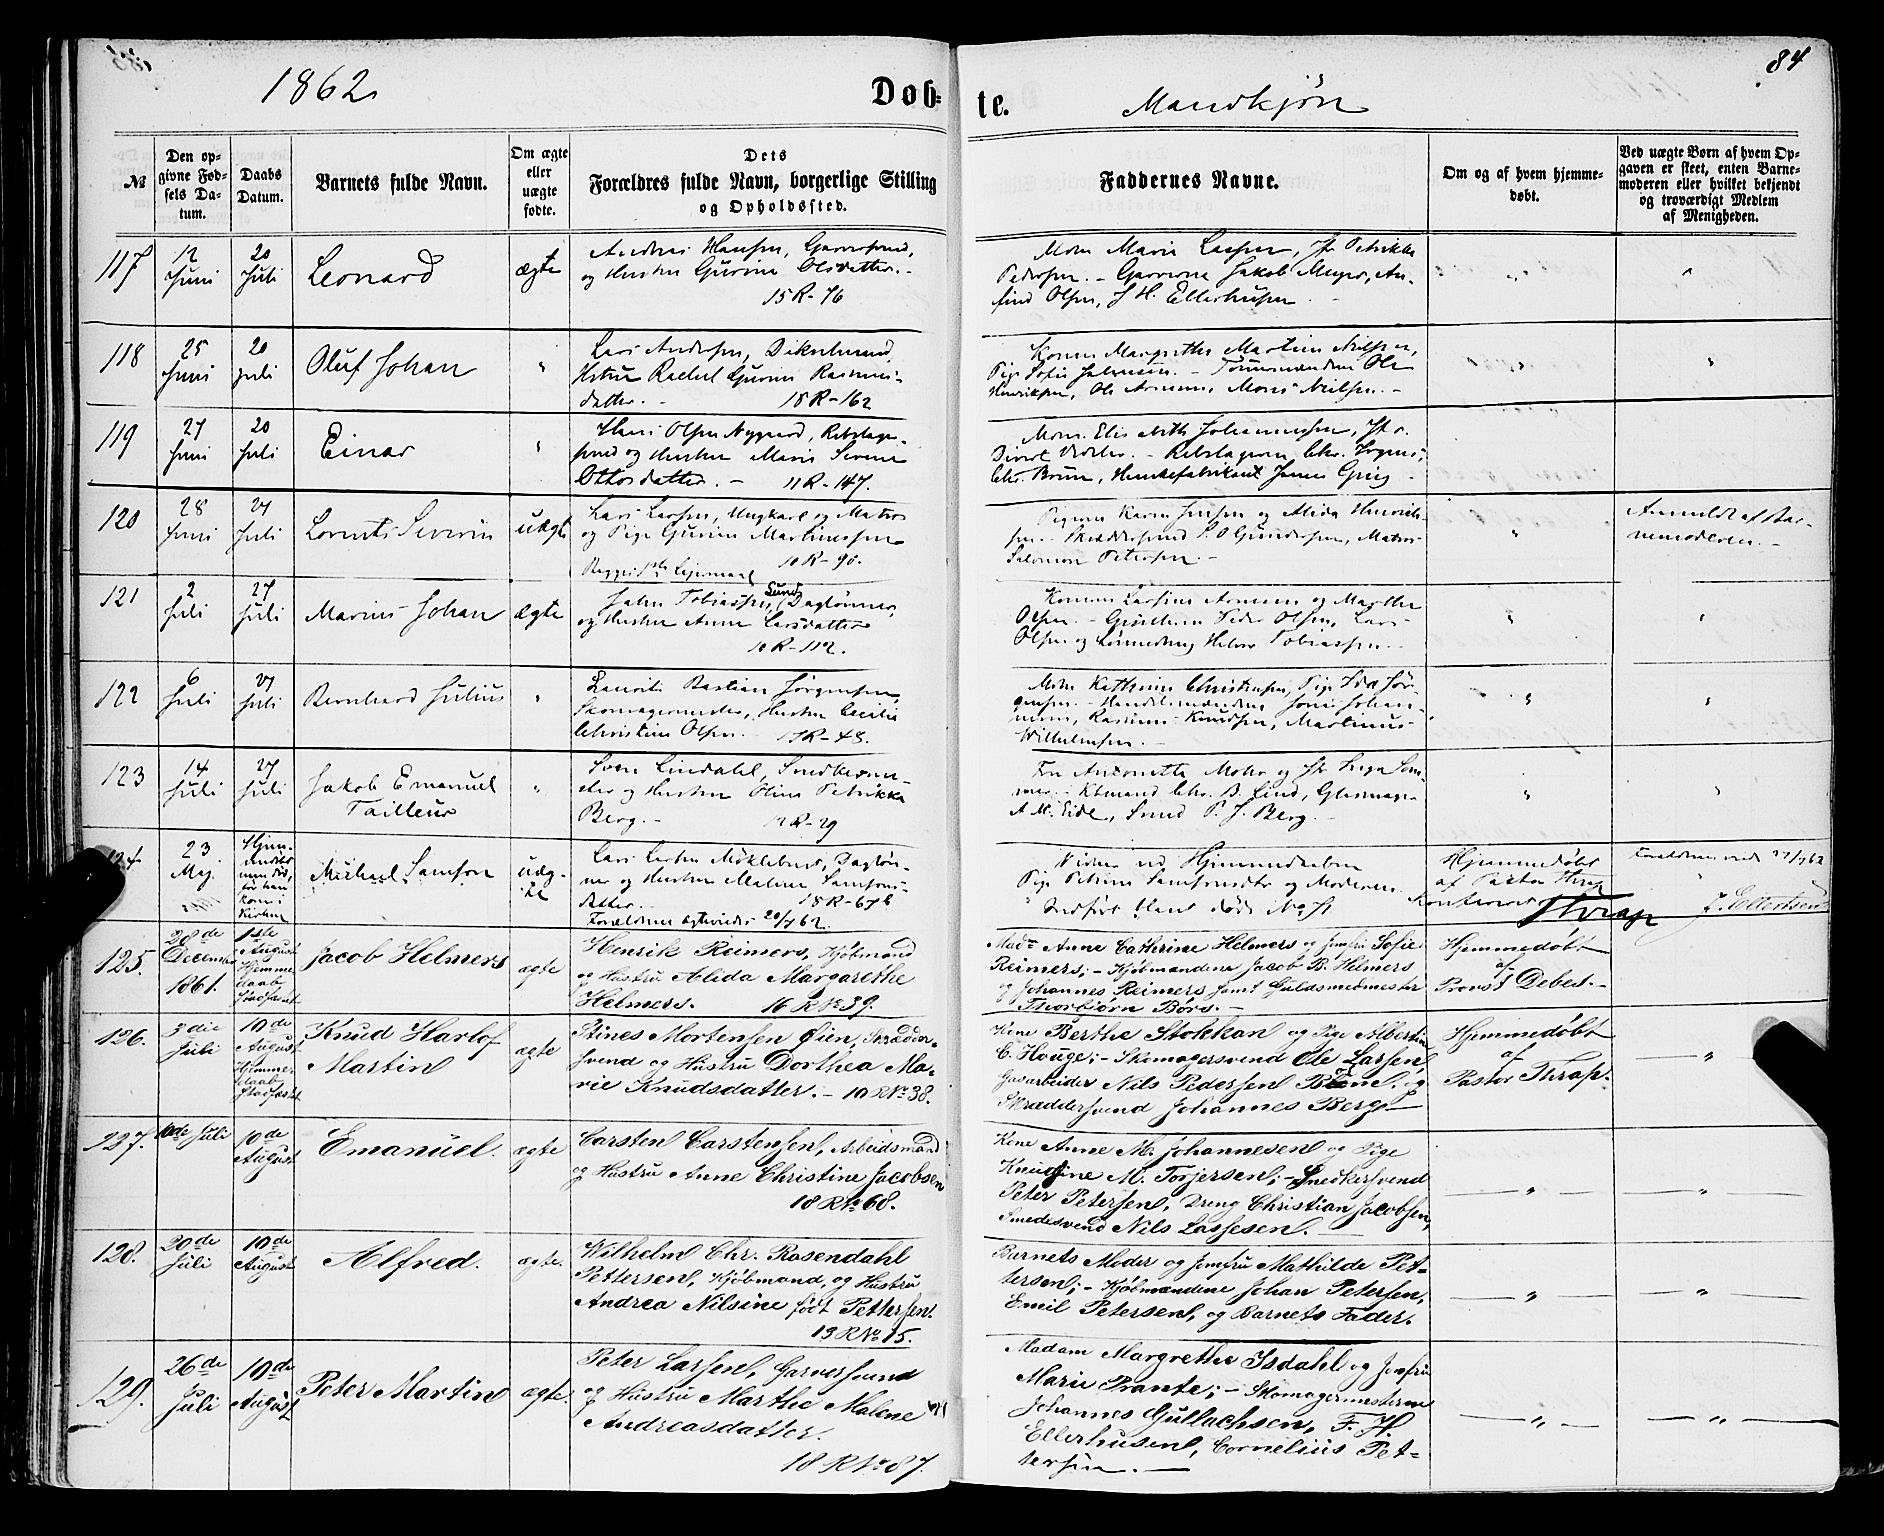 1862
Døb=
te.
Mandkjøn
84
№
Den op-
givne Fød-
sels Da-
tum.
Daabs
Datum.
Barnets fulde Navn.
Om ægte
eller
uægte
fødte.
Dets
Forældres fulde Navn, borgerlige Stilling
og Opholdssted.
Faddernes Navne.
Om og af hvem hjemme-
døbt.
Ved uægte Børn af hvem Op-
gaven er skeet, enten Barne-
moderen eller hvilket bekjendt
og troværdigt Medlem
af Menigheden.
117
12
Juni
20
Juli
Leonard
ægte
Andreas Hansen, Garversvend,
og Hustru Gurine Olsdatter. -
15 R - 76
Mdm Marie Larsen, Jfr Petrikke
Pedersen. - Garverne Jakob Meyer, An-
find Olsen, J H. Ellerhusen -
118
25
Juni
20
Juli
Oluf Johan
"
Lars Andersen,
Hstru Rachel Gurine Rasmus-
datter. - 18 R - 162
Konen Margrethe Martine Nielsen,
Pige Sofie Johnsen. - Tømmermændene Ole
Henriksen, Ole Arnesen, Mons Nielsen. -
119
27
Juni
20
Juli
Einar
"
Hans Olsen Nygaard, Rebslager-
svend og Hustru Maren Severine
Ottosdatter. - 11 R - 147.
Mdm. Elisabeth Johannessen, Jfr.
- Rebslagerne Chr. Irgens,
Chr. Bruun, Jonas Grieg -
120
28
Juni
27
Juli
Lorents Severin
uægte
Lars Larsen, Ungkarl og Matros
og Pige Gurine Martinussen
10 R - 90.
Begges 1ste Leiermaal
Pigerne Karen Jensen og Alida Henrik-
sen. - Skræddersvend P. O Gundersen, Matros
Salomon Petersen. -
"
Anmeldt af Bar-
nemoderen. -
121
2
Juli
27
Juli
Marius Johan
ægte
John Tobiassen Sund, Daglønner,
og Hustru Anne Larsdatter
10 R - 112.
Konen Larsine Arnesen og Marthe
Olsen. - Peder Olsen, Lars
Olsen og Tobiassen. -
122
6
Juli
27
Juli
Bernhard Julius
"
Laurits Bastian Jørgensen,
Skomagermester, Hustru Cecilie
Christine Olsen. 17 R - 48.
Mdm Kathrine Christensen, Pige Ida Jør-
gensen. - Handelsmændene Jons Johan-
nesen, Rasmus Knudsen, Martinus
Wilhelmsen. -
123
14
Juli
27
Juli
Jakob Emanuel
Tailleur
"
Sven Lindahl, Snedkerme-
ster og Hustru Oline Petrikke
Berg. - 12 R - 29
Fru Antonette Mohr og Jfr Inga Som-
mer. - Kbmand Chr. B. Lind, Glasmager
A M. Eide, Smed P. J. Berg. -
124
23
Maj
Hjem-
Kirken
Michael Samson
uæg-
te
Lars Larsen Møklebust, Dagløn-
ner og Hustru Malene Samsons-
datter. - 18 R - 67 b
Forældrene ægteviede 20/7 62
Vidner ved Hjemmedaaben
Pige Petrine Samsonsdtr og Moderen.
Hjemmedøbt
af Pastor Thrap
Thrap
Forældrene 27/7 62
J. Ellertsen
125.
28de
December
1861.
1ste
August
Hjemme-
daab
Stadfæstet
Jacob Helmers
ægte
Henrik Reimers, Kjøbmand
og Hustru Alida Margarethe
Helmers. 16 R № 39.
Madm Anne Cathrine Helmers og Jomfru Sofie
Reimers; - Kjøbmændene Jacob B. Helmers
og Johannes Reimers samt Guldsmedmester
Thorbjørn Børs. -
Hjemmedøbt
af
Provst Debes. -
126.
3die
Juli
10de
August
Hjemme-
daab
Stadfæstet
Knud Harlof
Martin
ægte
Stines Mortensen Øien, Skrædder-
svend og Hustru Dorthea Ma-
rie Knudsdatter. - 10 R № 38.
Kone Berthe Stokkan og Pige Albertine
C. Houge; - Skomagersvend Ole Larsen,
Gasarbeider Nils Pedersen og
Skræddersvend Johannes Berg. -
Hjemmedøbt
af
Pastor Thrap.
"
227.
10de Juli
10de
August
Emanuel.
ægte
Carsten Carstensen, Arbeidsmand
og Hustru Anne Christine Jacobsen
18 R № 68.
Kone Anne M. Johannesen og Pige
Knudsine M. Torjersen; - Snedkersvend
Peter Petersen, Dreng Christian Jacobsen,
Smedesvend Nils Lassesen. -
"
"
128.
30de
Juli
10de
August
Alfred.
ægte.
Wilhelm Chr. Rosendahl
Pettersen, Kjøbmand, og Hustru
Andrea Nilsine født Pettersen.
13 R № 15.
Barnets Moder og Jomfru Mathilde Pet-
tersen; - Kjøbmændene Johan Petersen,
Emil Petersen, og Barnets Fader.
"
"
129.
26de
Juli
10de
August
Peter Martin
ægte.
Peter Larsen, Garversvend
og Hustru Marthe Malene
Andreasdatter.
18 R № 87.
Madam Margrethe Isdahl og Jomfru
Marie Prante; - Skomagermesterne
Johannes Gullachsen, F. H.
Ellerhusen, Cornelius Pet-
tersen. -
"
"